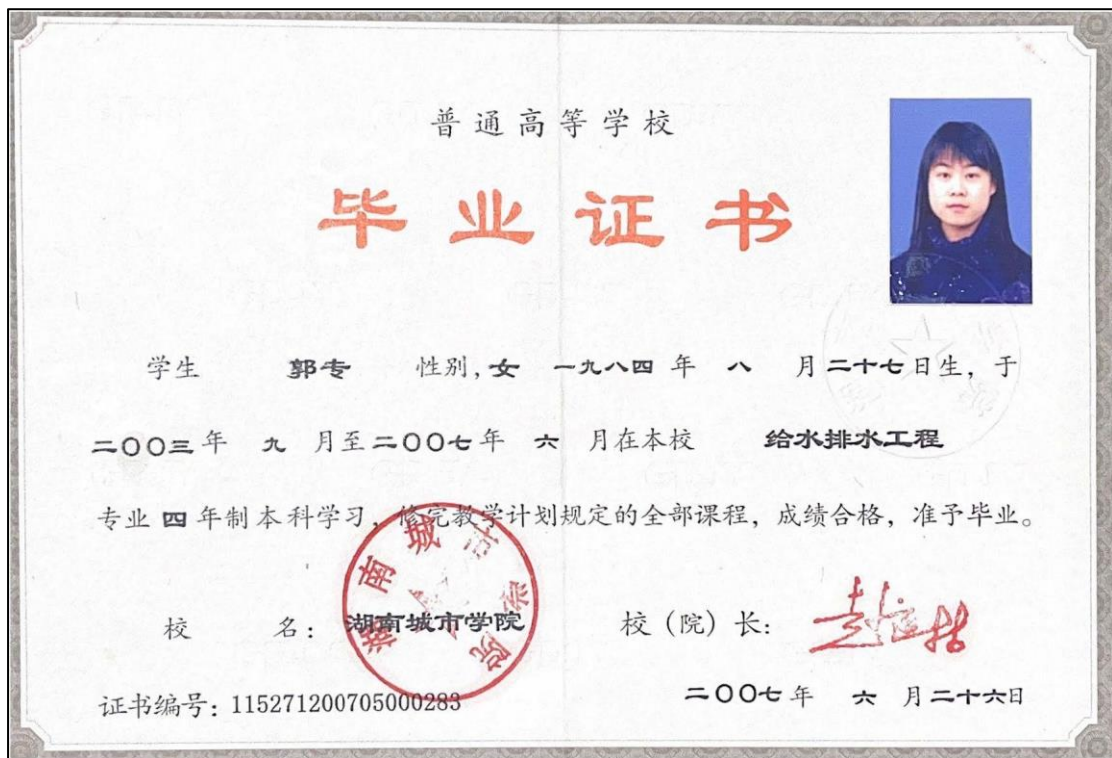 普通高等学校
毕业证书
学生 郭专 性别,女 一九八四年 八 月二十七日生，于
二〇〇三年 九 月至二〇〇七年 六 月在本校 给水排水工程
专业四年制本科学习，修完教学计划规定的全部课程，成绩合格，准予毕业。
校 名：湖南城市学院 校（院）长：
湖南城市学院
证书编号：115271200705000283 二〇〇七年 六 月二十六日